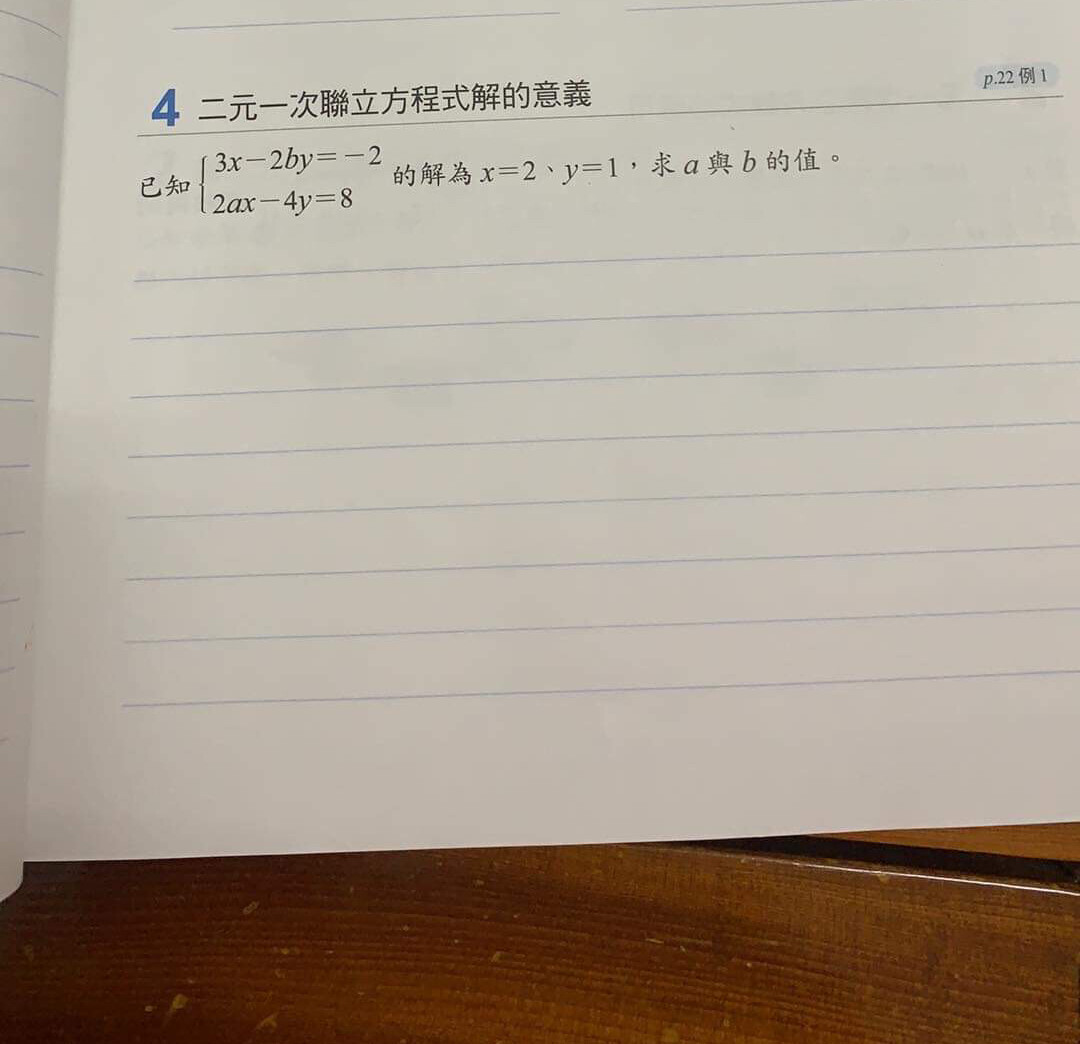 4 二元一次聯立方程式解的意義 p.22 例 1
已知 { 3x－2by＝－2
2ax－4y＝8 的解為 x＝2、y＝1，求 a 與 b 的值。